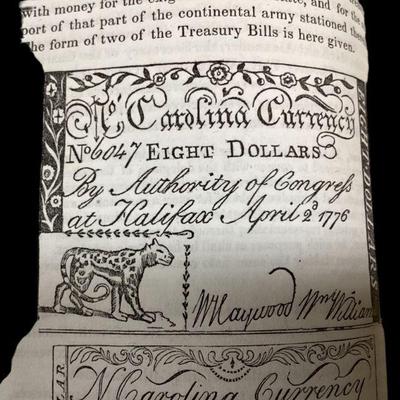 with money for the
port of that part of the continental army stationed
The form of two of the Treasury Bills is here given.
Nº Carolina Currency
No 6047 EIGHT DOLLARS
By Authority of Congress
at Halifax April 2d 1776
W Haywood Wm William
N Carolina Currency